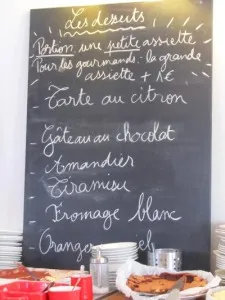 Les desserts
Portion une petite assiette
Pour les gourmands: la grande
assiette + 1€
Tarte au citron
Gâteau au chocolat
Amandier
Tiramisu
Fromage blanc
Oranges